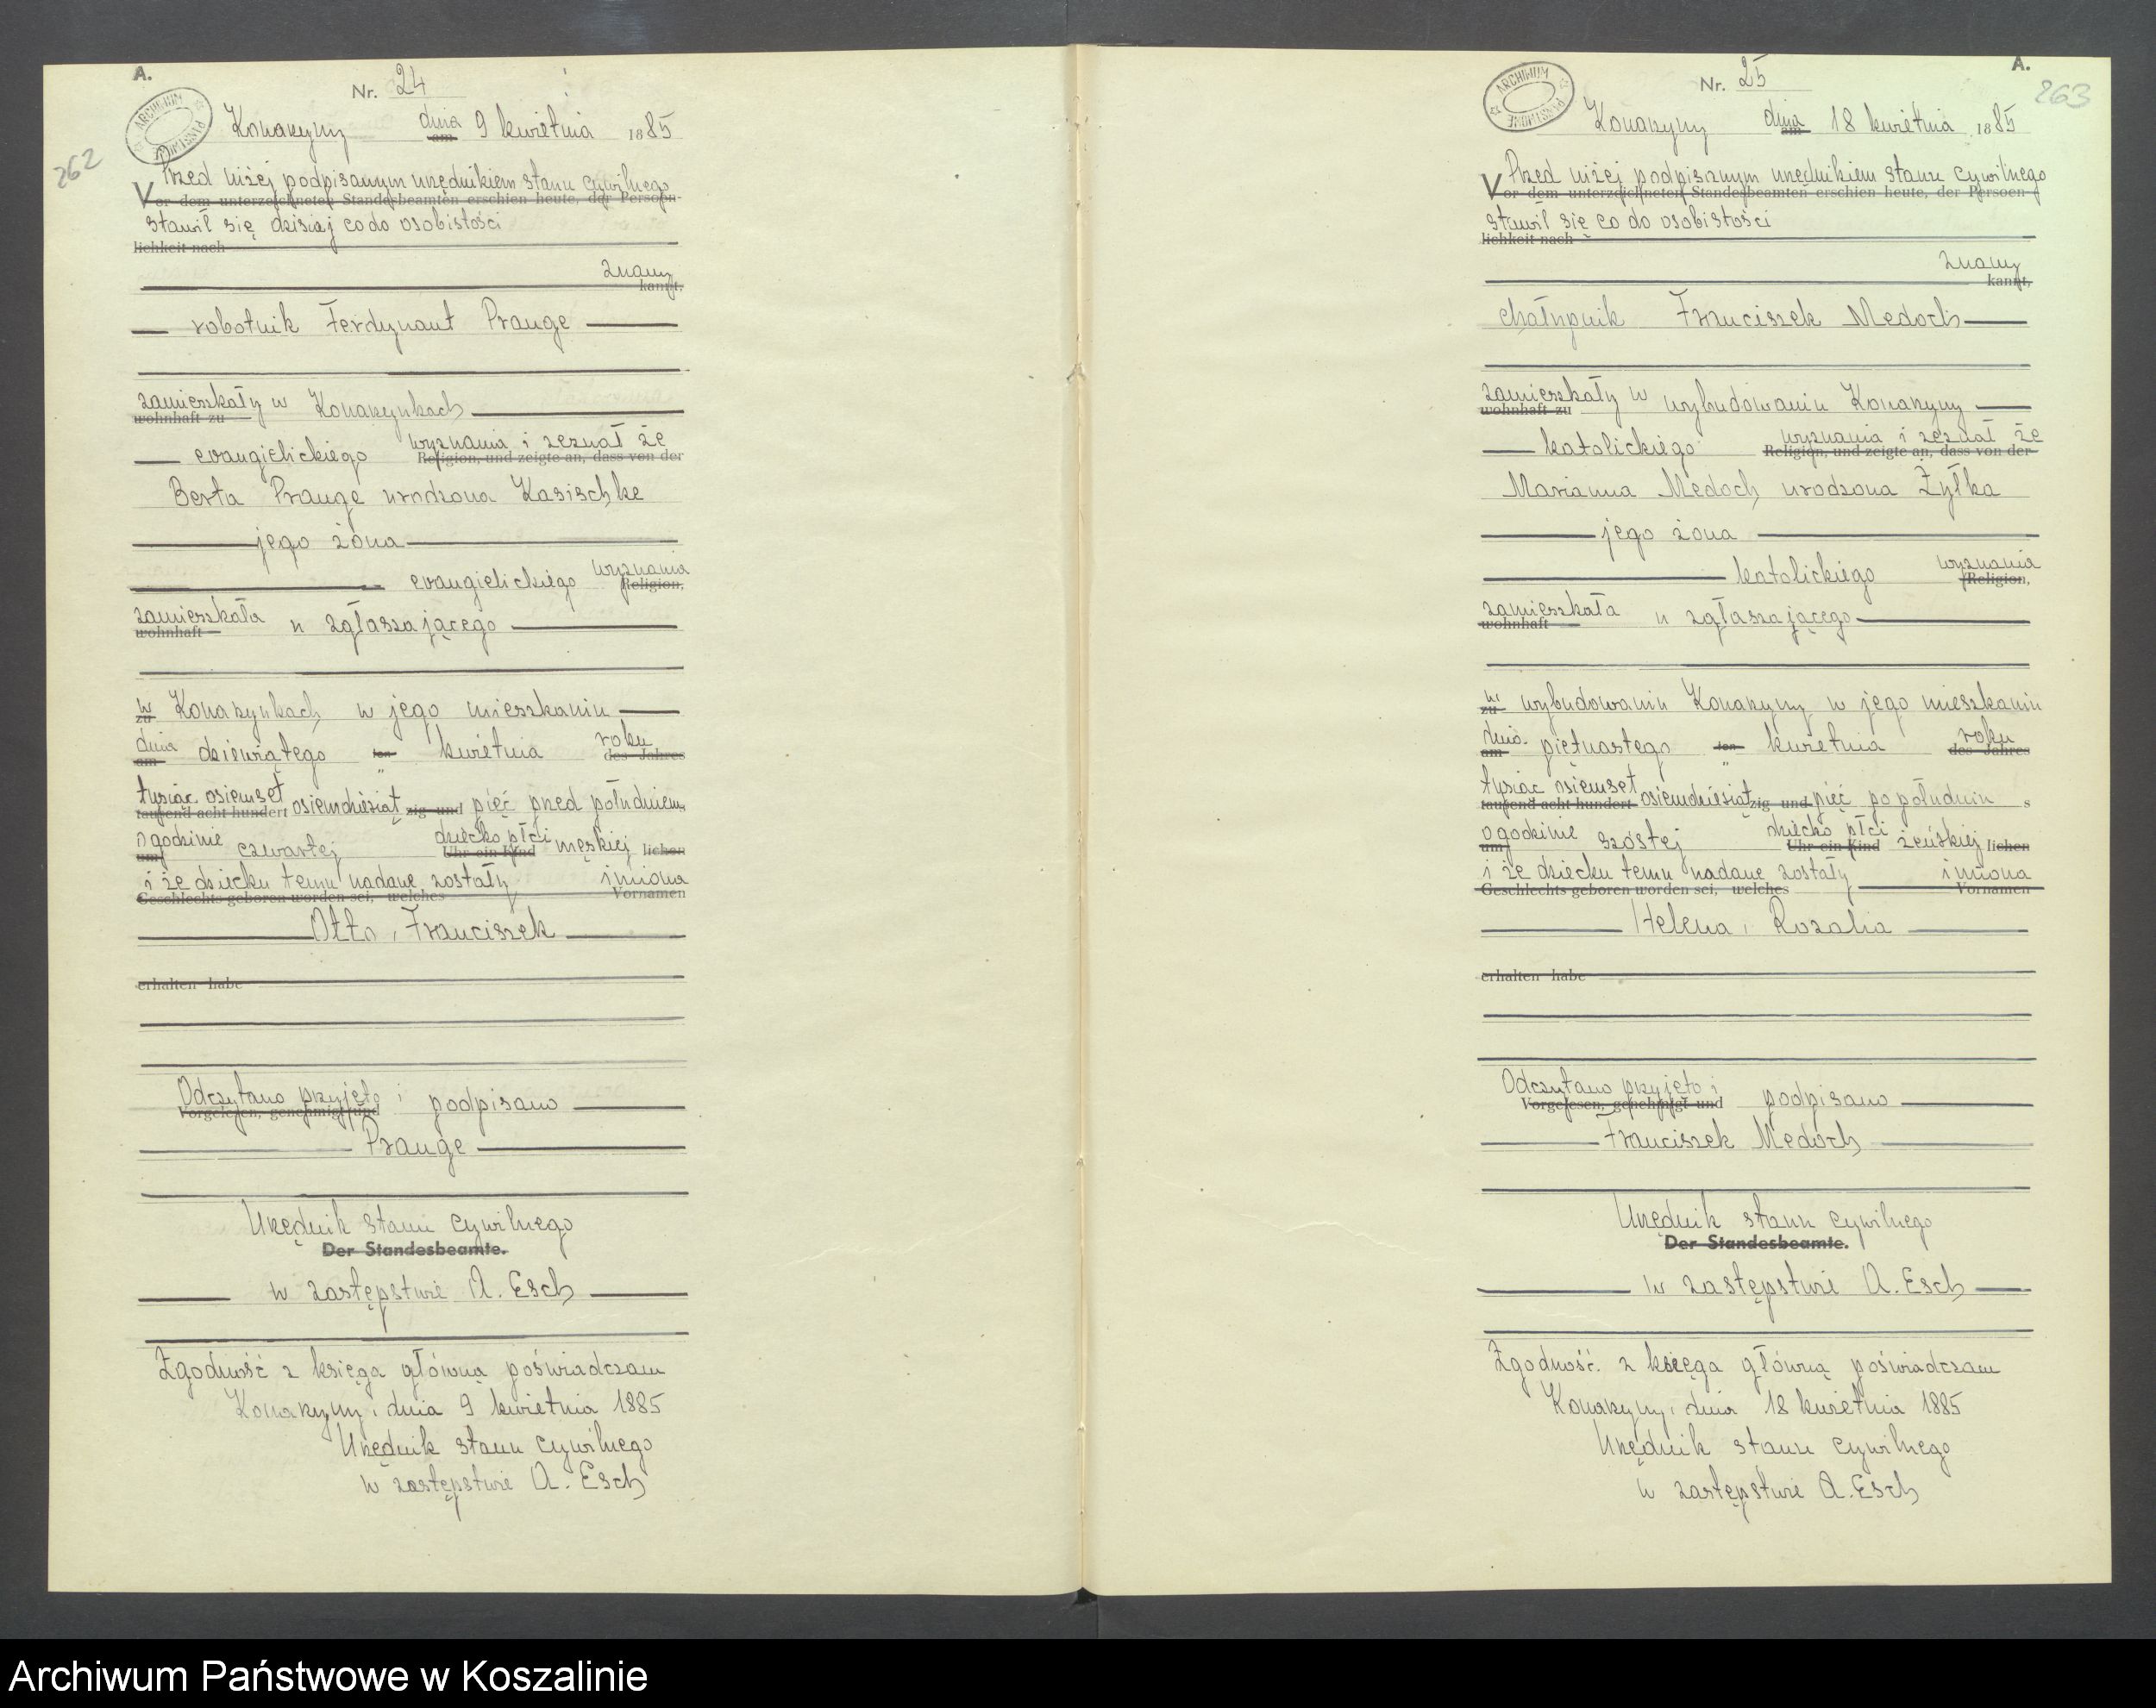 A.
Nr. 24
ARCHIWUM PAŃSTWOWE
262
Konarzyny dnia am 9 kwietnia 1885
Przed niżej podpisanym urzędnikiem stanu cywilnego
Vor dem unterzeichneten Standesbeamten erschien heute, der Persoen-
stawił się dzisiaj co do osobistości
lichkeit nach
znany
kannt,
robotnik Ferdynant Prange
zamieszkały w Konarzynkach
wohnhaft zu
evangielickiego wyznania i zeznał że
Religion, und zeigte an, dass von der
Berta Prange urodzona Kasischke
jego żona
evangielickiego wyznania
Religion,
zamieszkała u zgłaszającego
wohnhaft
w Konarzynkach w jego mieszkaniu
zu
dnia dziewiątego ten kwietnia roku
am des Jahres
tysiąc osiemset osiemdziesiąt zig und pięć przed południem
tausend acht hundert
o godzinie czwartej dziecko płci męskiej lichen
um Uhr ein Kind
i że dziecku temu nadane zostały imiona
Geschlechts geboren worden sei, welches Vornamen
Otto, Franciszek
erhalten habe
Odczytano przyjęto i podpisano
Vorgelesen, genehmigt und
Prange
Urzędnik stanu cywilnego
Der Standesbeamte.
w zastępstwie A. Esch
Zgodność z księga główną poświadczam
Konarzyny, dnia 9 kwietnia 1885
Urzędnik stanu cywilnego
w zastępstwie A. Esch
A.
Nr. 25
263
ARCHIWUM PAŃSTWOWE
Konarzyny dnia am 18 kwietnia 1885
Przed niżej podpisanym urzędnikiem stanu cywilnego
Vor dem unterzeichneten Standesbeamten erschien heute, der Persoen-
stawił się co do osobistości
lichkeit nach
znany
kannt,
chałupnik Franciszek Medoch
zamieszkały w wybudowaniu Konarzyny
wohnhaft zu
katolickiego wyznania i zeznał że
Religion, und zeigte an, dass von der
Marianna Medoch urodzona Żyłka
jego żona
katolickiego wyznania
Religion,
zamieszkała u zgłaszającego
wohnhaft
w wybudowaniu Konarzyny w jego mieszkaniu
zu
dnia piętnastego ten kwietnia roku
am des Jahres
tysiąc osiemset osiemdziesiąt zig und pięć po południu s
tausend acht hundert
o godzinie szóstej dziecko płci żeńskiej lichen
um Uhr ein Kind
i że dziecku temu nadane zostały imiona
Geschlechts geboren worden sei, welches Vornamen
Helena, Rozalia
erhalten habe
Odczytano przyjęto i podpisano
Vorgelesen, genehmigt und
Franciszek Medoch
Urzędnik stanu cywilnego
Der Standesbeamte.
w zastępstwie A. Esch
Zgodność z księga główną poświadczam
Konarzyny, dnia 18 kwietnia 1885
Urzędnik stanu cywilnego
w zastępstwie A. Esch
Archiwum Państwowe w Koszalinie